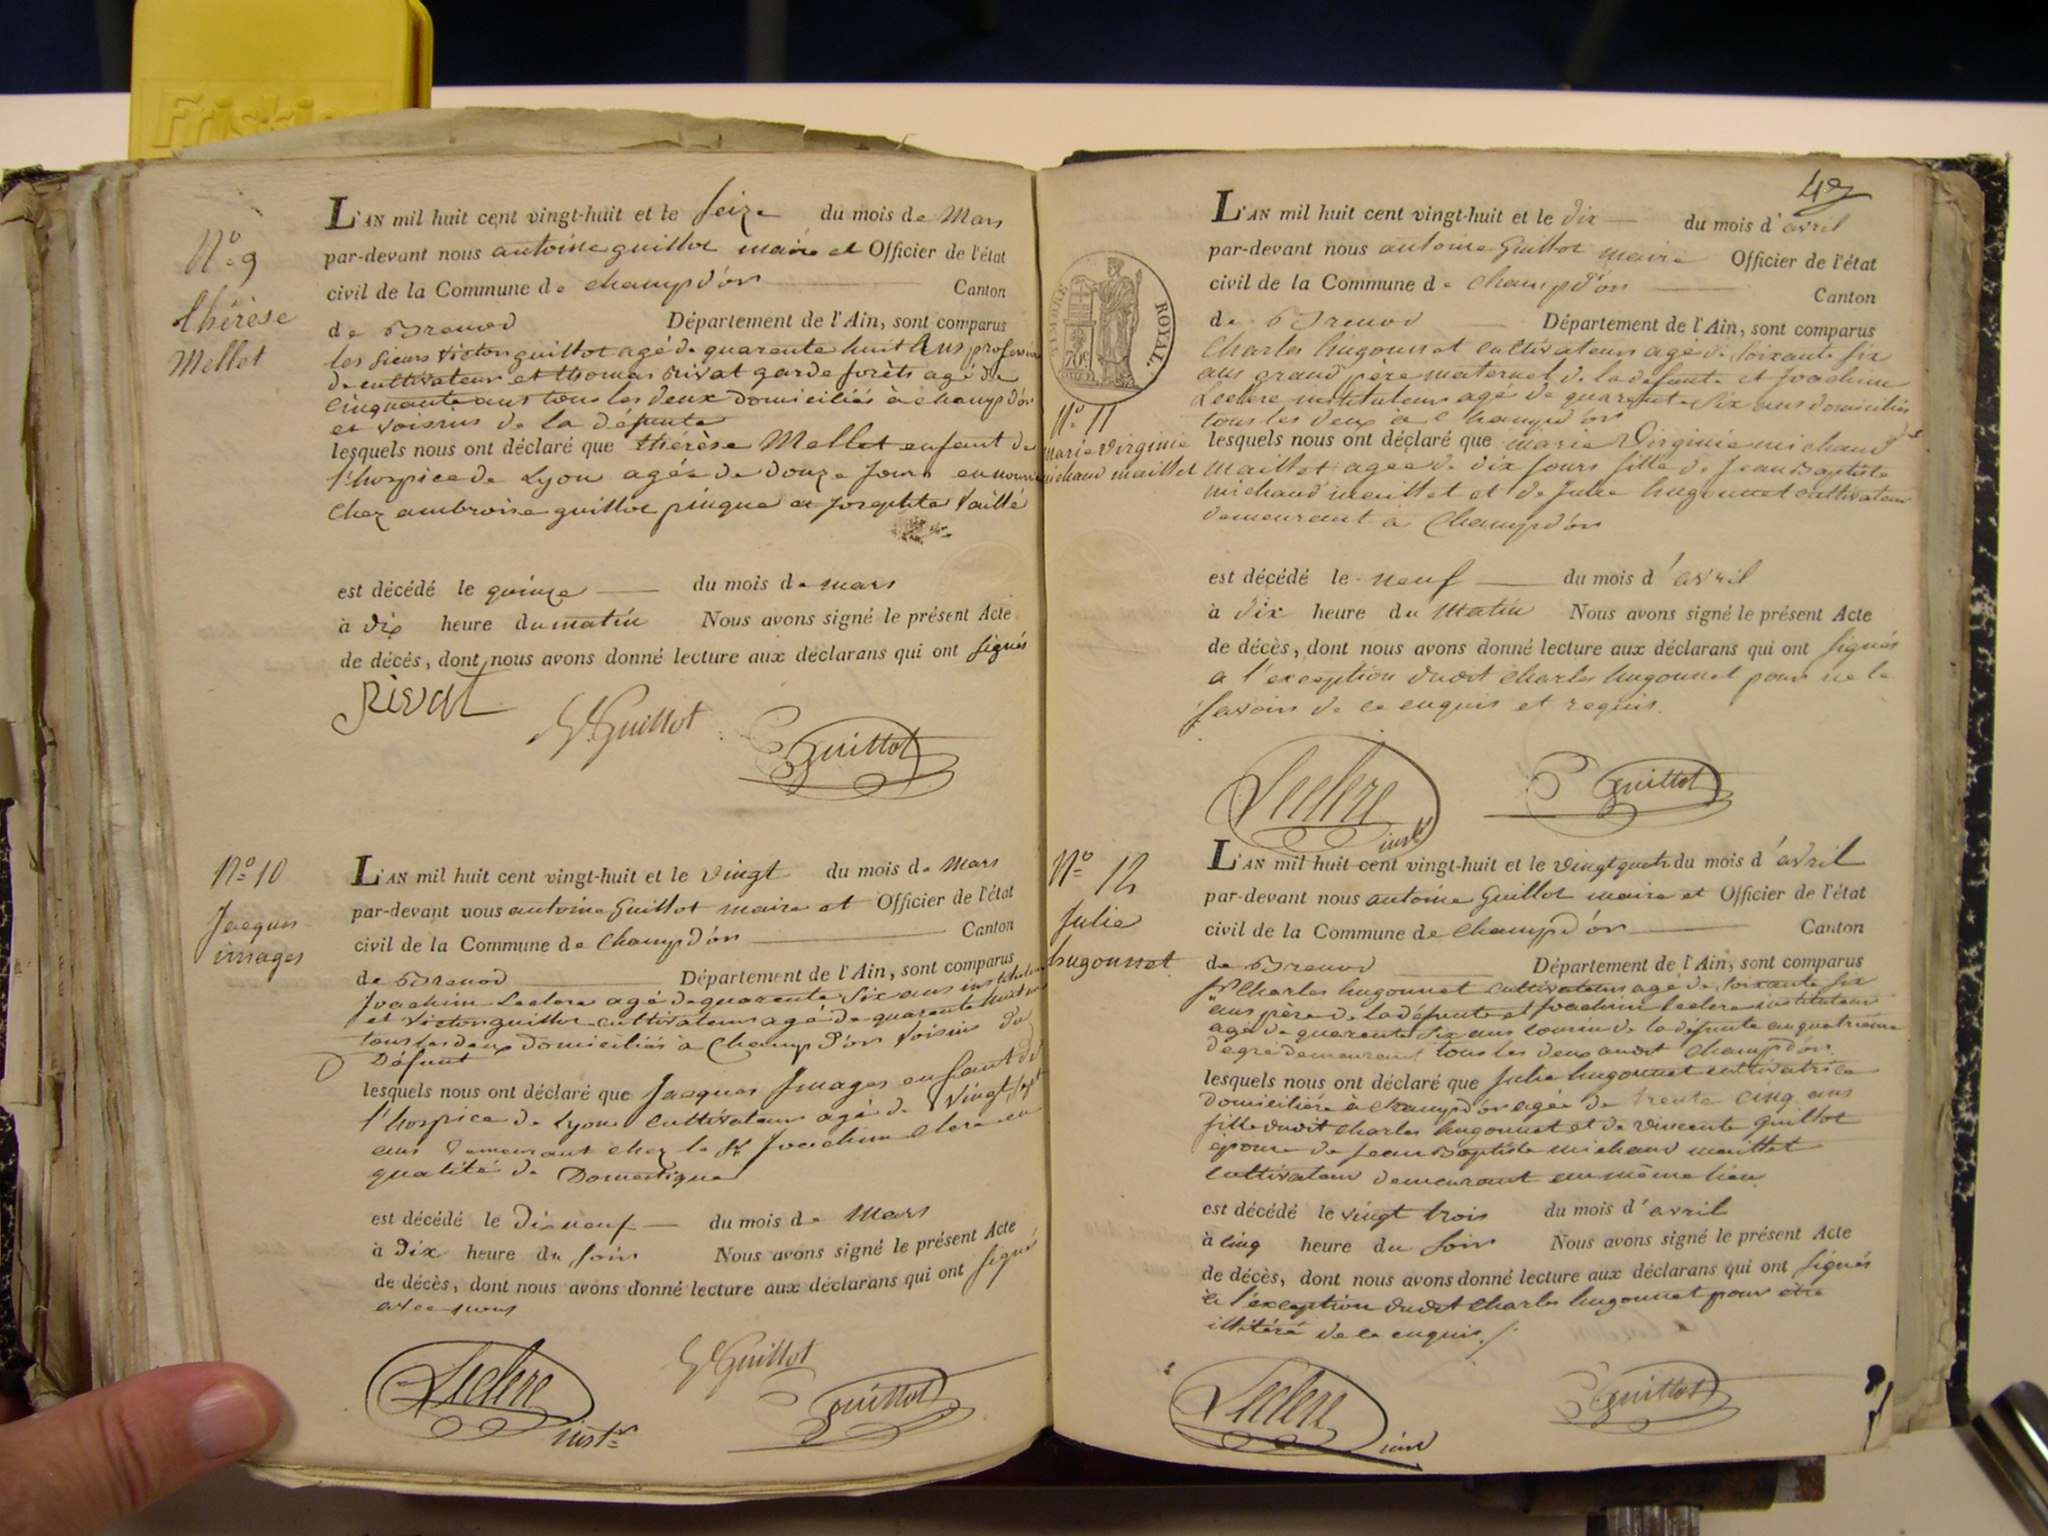 Friskies
N.o 9
thérèse
Mellet
L'AN mil huit cent vingt-huit et le seize du mois de Mars
par-devant nous antoine guillot maire et Officier de l'état
civil de la Commune de champd'or Canton
de Brenod Département de l'Ain, sont comparus
les sieurs victor guillot agé de quarente huit ans profession
de cultivateur et thomas rivat garde forêts agé de
cinquante ans tous les deux domiciliés à champd'or
et voisins de la défunte
lesquels nous ont déclaré que thérèse Mellet enfant de
l'hospice de Lyon agée de douze jours en nourrice
chez ambroise guillot pingue et josephte vaillé
est décédé le quinze du mois de mars
à dix heure du matin Nous avons signé le présent Acte
de décès, dont nous avons donné lecture aux déclarans qui ont signés
Rivat
Vr Guillot
Guillot
N.o 10
Jacques
images
L'AN mil huit cent vingt-huit et le vingt du mois de Mars
par-devant nous antoine Guillot maire et Officier de l'état
civil de la Commune de Champd'or Canton
de Brenod Département de l'Ain, sont comparus
Joachim Leclerc agé de quarente six ans instituteur
et victor guillot cultivateur agé de quarente huit ans
tous les deux domiciliés à Champd'or voisins du
Défunt
lesquels nous ont déclaré que Jacques Images enfant de
l'hospice de Lyon cultivateur agé de vingt sept
ans demeurant chez le Sr Joachim clerc en
qualité de Domestique
est décédé le dix neuf du mois de Mars
à Dix heure du soir Nous avons signé le présent Acte
de décès, dont nous avons donné lecture aux déclarans qui ont signé
avec nous
Leclerc
instr
Vr Guillot
Guillot
TIMBRE ROYAL.
70c
N.o 11
marie virginie
michaud maillet
L'AN mil huit cent vingt-huit et le dix du mois d'avril
par-devant nous antoine Guillot maire Officier de l'état
civil de la Commune de Champd'or Canton
de Brenod Département de l'Ain, sont comparus
Charles hugonnet cultivateur agé de soixante six
ans grand père maternel de la défunte et Joachim
Leclerc instituteur agé de quarente six ans domiciliés
tous les deux à Champd'or
lesquels nous ont déclaré que marie Virginie michaud
maillet agée de dix jours fille de Jean Baptiste
michaud maillet et de Julie hugonnet cultivateur
demeurant à Champd'or
est décédé le neuf du mois d'avril
à dix heure du Matin Nous avons signé le présent Acte
de décès, dont nous avons donné lecture aux déclarans qui ont signés
a l'exception dudit charles hugonnet pour ne le
savoir de ce enquis et requis.
Leclerc
instr
Guillot
N.o 12
Julie
hugonnet
L'AN mil huit cent vingt-huit et le vingt quatre du mois d'avril
par-devant nous antoine Guillot maire et Officier de l'état
civil de la Commune de Champd'or Canton
de Brenod Département de l'Ain, sont comparus
Sr Charles hugonnet cultivateur agé de soixante six
ans père de la défunte et Joachim leclerc instituteur
agé de quarente six ans cousin de la défunte au quatrième
degré demeurant tous les deux audit Champd'or.
lesquels nous ont déclaré que Julie hugonnet cultivatrice
domiciliée à champd'or agée de trente cinq ans
fille dudit charles hugonnet et de vincente guillot
épouse de Jean Baptiste michaud maillet
cultivateur demeurant au même lieu
est décédé le vingt trois du mois d'avril
à cinq heure du soir Nous avons signé le présent Acte
de décès, dont nous avons donné lecture aux déclarans qui ont signés
à l'exception dudit charles hugonnet pour être
illitéré de ce enquis.
Leclerc
inst
Guillot